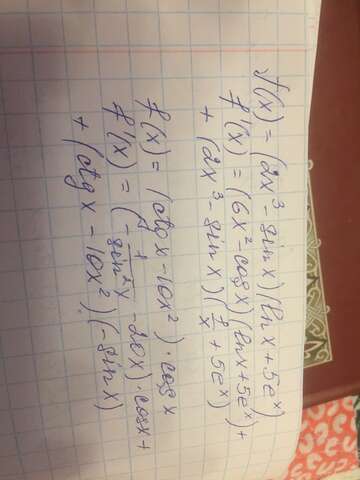 f(x) = (2x³ - sin x)(ln x + 5eˣ)
f'(x) = (6x² - cos x)(ln x + 5eˣ) +
+ (2x³ - sin x)(1/x + 5eˣ)
f(x) = (ctg x - 10x²) · cos x
f'(x) = (- 1/sin²x - 20x) · cos x +
+ (ctg x - 10x²)(- sin x)